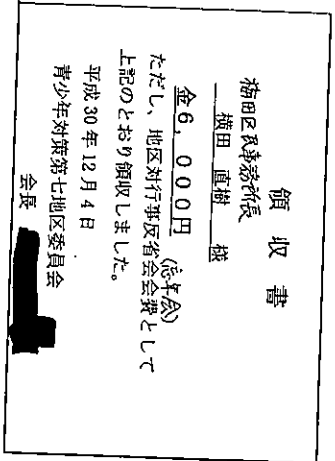 領収書
梅田区民事務所長
横田 直樹 様
金6,000円
(忘年会)
ただし、地区対行事反省会会費として
上記のとおり領収しました。
平成30年12月4日
青少年対策第七地区委員会
会長